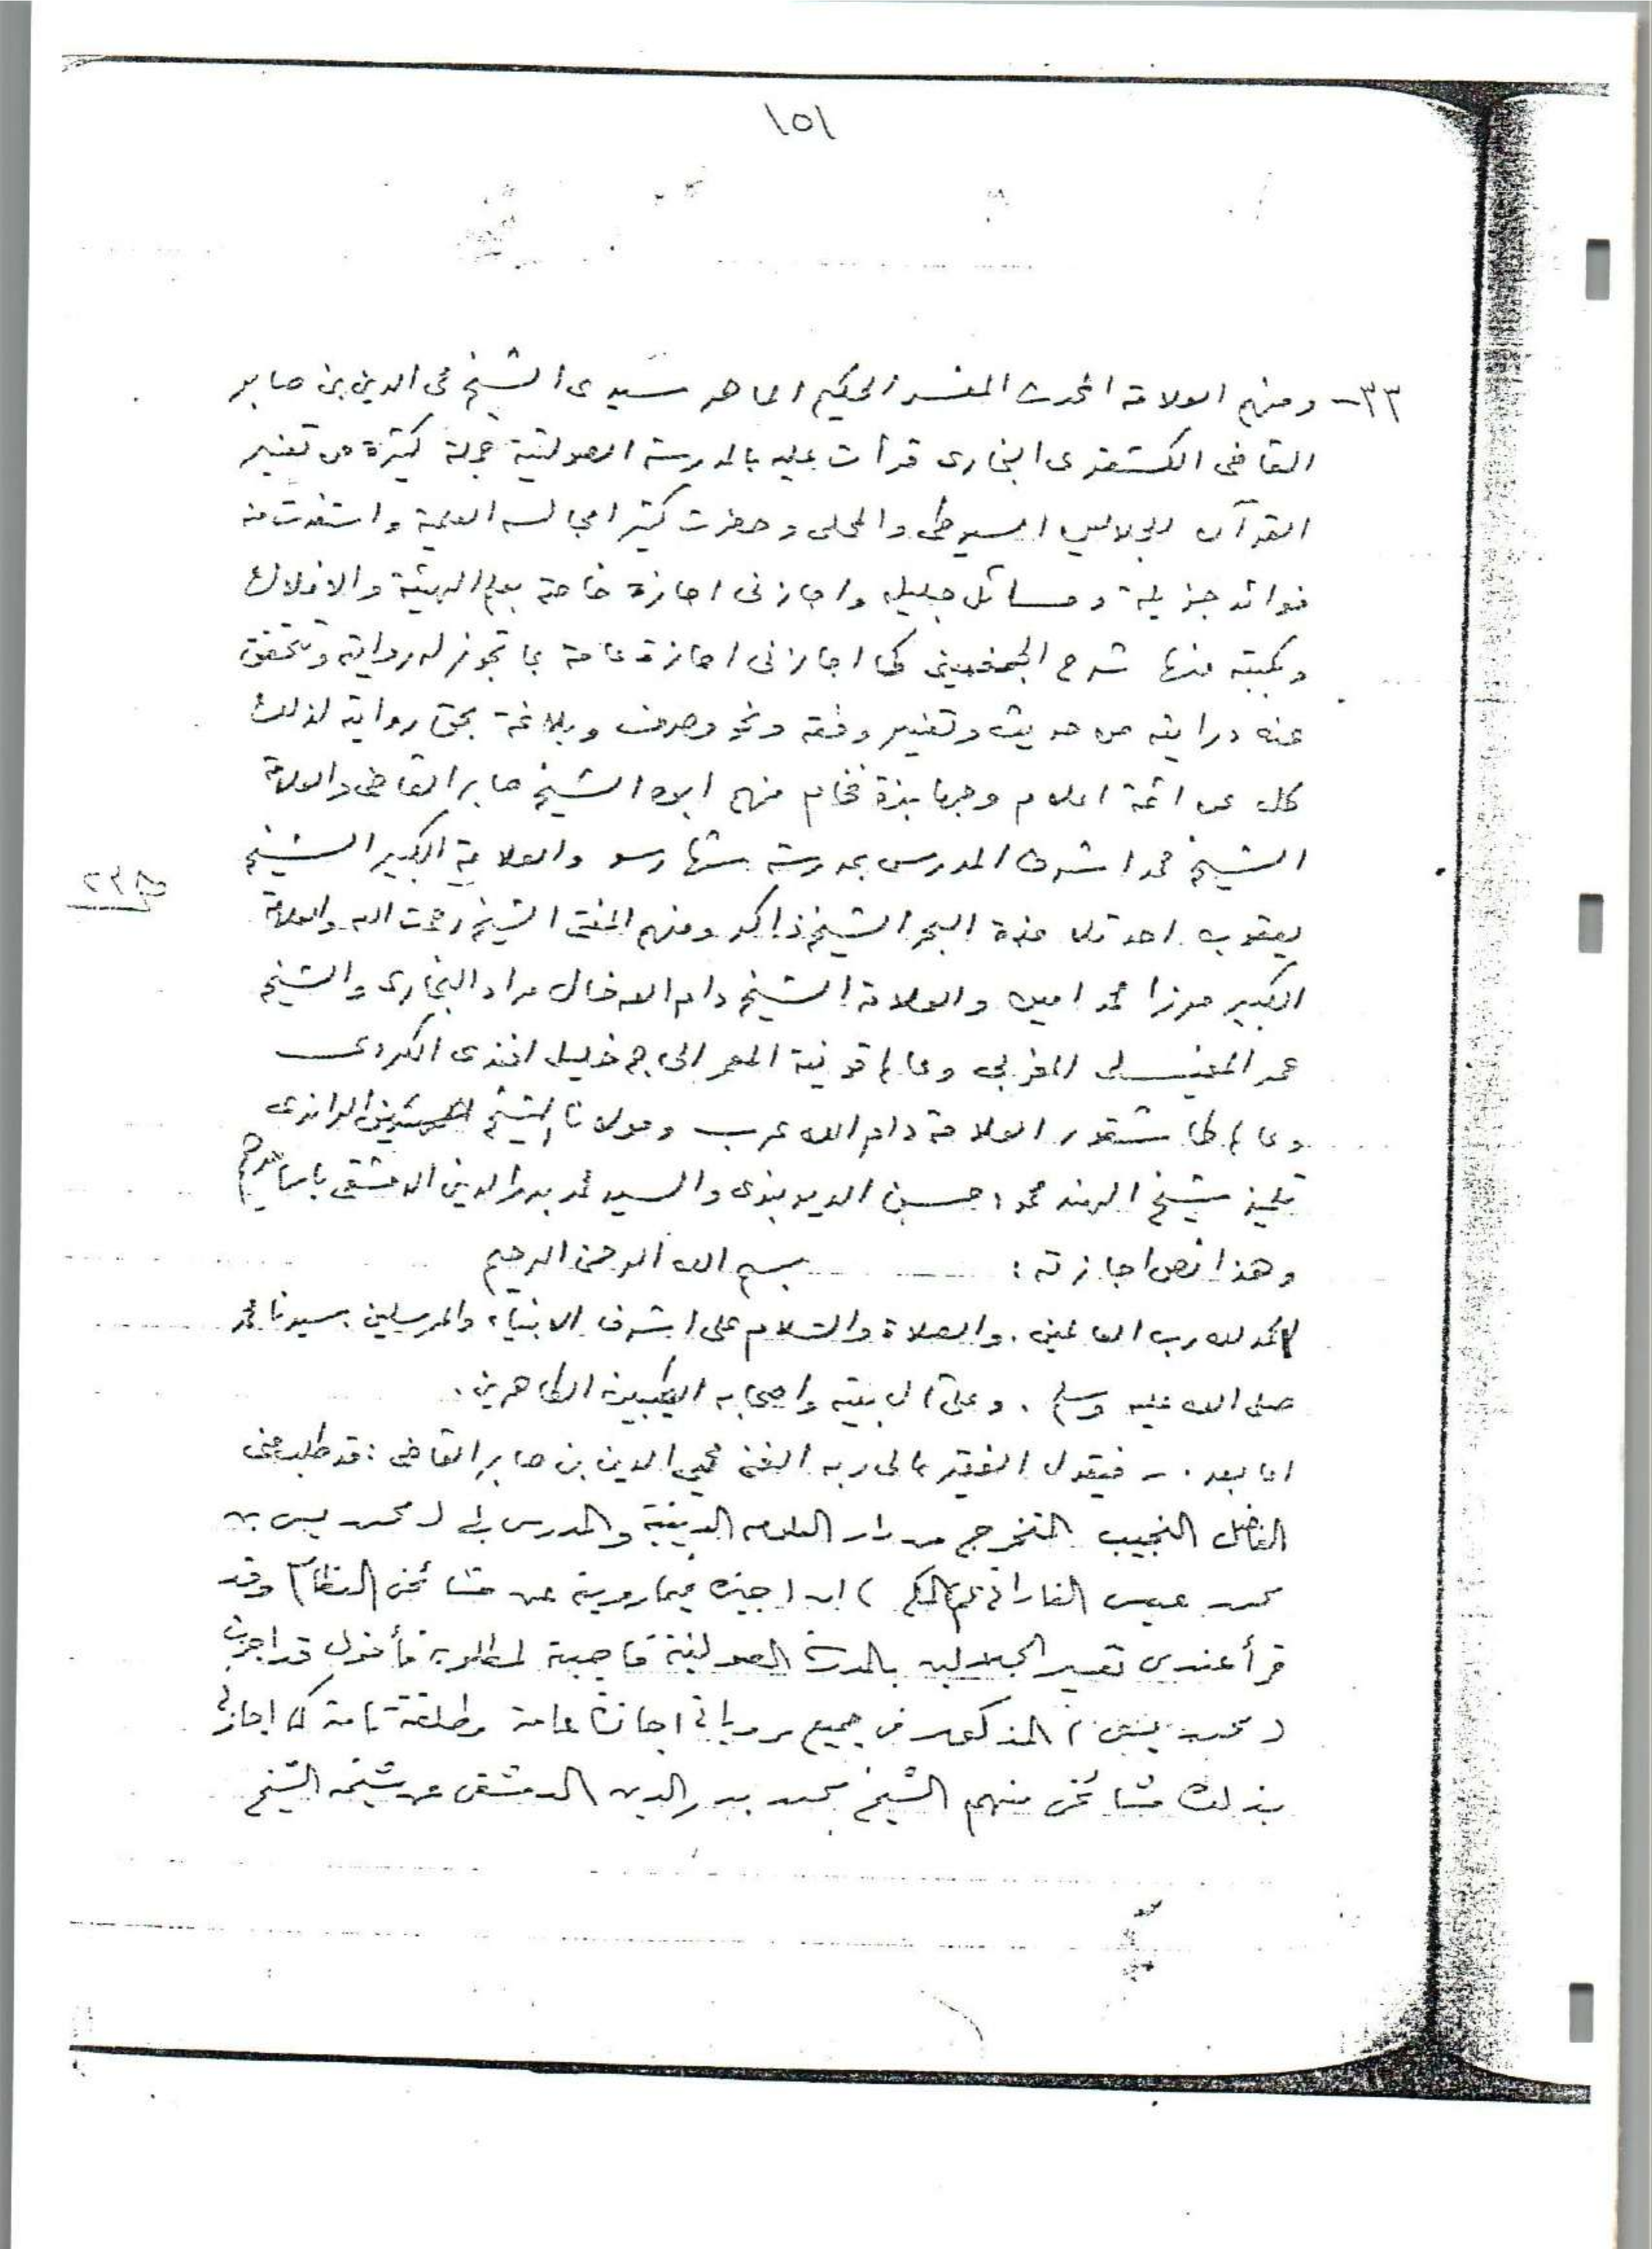 ١٥١
٣٣- ومنهم العلامة المحدث المفسر الحكيم الماهر سيدى الشيخ محى الدين بن صابر
القاضى الكشغرى البخارى قرأت عليه بالمدرسة الصولتية جملة كثيرة من تفسير
القرآن للجلالين السيوطى والمحلى وحضرت كثيرا مجالسه العلمية واستفدت منه
فوائد جزيلة ومسائل جليله واجازنى اجازة خاصة بعلم الهيئة والافلاك
وبكتبه منها شرح الجغمينى كما اجازنى اجازة عامة بما تجوز له روايته وتحقق
عنه درايته من حديث وتفسير وفقه ونحو وصرف وبلاغة بحق روايته لذلك
كله عن ائمة اعلام وجهابذة فخام منهم ابوه الشيخ صابر القاضى والعلامة
الشيخ محمد اشرف المدرس بمدرسة والعلامة الكبير الشيخ
يعقوب احد تلامذة البحر الشيخ ذاكر ومنهم المفتى الشيخ رحمت الله والعلامة
الكبير مرزا محمد امين والعلامة الشيخ دام الله خال مراد البخارى والشيخ
عمر المغربى وعالم قونية المعمر الحاج خليل افندى الكردى
وعالم العلامة دام الله عرب ومولانا الشيخ
تلميذ شيخ الهند محمود حسن الديوبندى والسيد محمد بدر الدين الدمشقى
وهذا نص اجازته : بسم الله الرحمن الرحيم
الحمد لله رب العالمين . والصلاة والسلام على اشرف الانبياء والمرسلين سيدنا محمد
صلى الله عليه وسلم . وعلى آل بيته واصحابه الطيبين الطاهرين .
اما بعد . - فيقول الفقير الى ربه الغنى محيى الدين بن صابر القاضى : قد طلب منى
الفاضل النجيب المتخرج من دار العلوم الدينية والمدرس بها ( محمد يس بن
محمد عيسى الفادانى ثم المكى ) ان اجيزه فيما رويته عن مشائخى العظام وقد
قرأ عندى تفسير الجلالين بالمدرسة الصولتية فاجبته لمطلوبه فأقول قد اجزت
( محمد يس ) المذكور فى جميع مروياتى اجازة عامة مطلقة تامة كما اجازنى
بذلك مشائخى منهم الشيخ محمد بدر الدين الدمشقى عن شيخه الشيخ